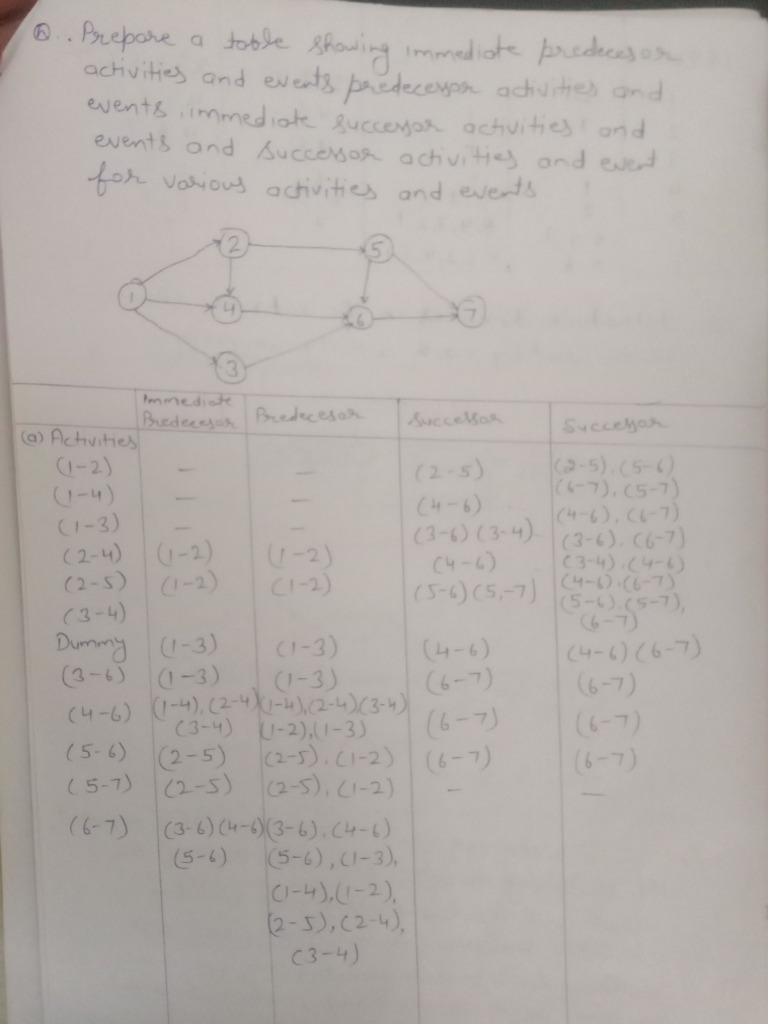 (h).. Prepare a table showing immediate predecesor
activities and events predecessor activities and
events, immediate successor activities and
events and successor activities and event
for various activities and events
1 2 3 4 5 6 7
Immediate Predecesor Predecesor Successor Successor
(a) Activities
(1-2) — — (2-5) (2-5), (5-6)
(6-7), (5-7)
(1-4) — — (4-6) (4-6), (6-7)
(1-3) — — (3-6) (3-4) (3-6), (6-7)
(3-4), (4-6)
(2-4) (1-2) (1-2) (4-6) (4-6), (6-7)
(2-5) (1-2) (1-2) (5-6) (5,-7) (5-6), (5-7),
(6-7)
(3-4)
Dummy (1-3) (1-3) (4-6) (4-6) (6-7)
(3-6) (1-3) (1-3) (6-7) (6-7)
(4-6) (1-4), (2-4) (1-4), (2-4) (3-4) (6-7) (6-7)
(3-4) (1-2), (1-3)
(5-6) (2-5) (2-5), (1-2) (6-7) (6-7)
(5-7) (2-5) (2-5), (1-2) — —
(6-7) (3-6) (4-6) (3-6), (4-6)
(5-6) (5-6), (1-3),
(1-4), (1-2),
(2-5), (2-4),
(3-4)